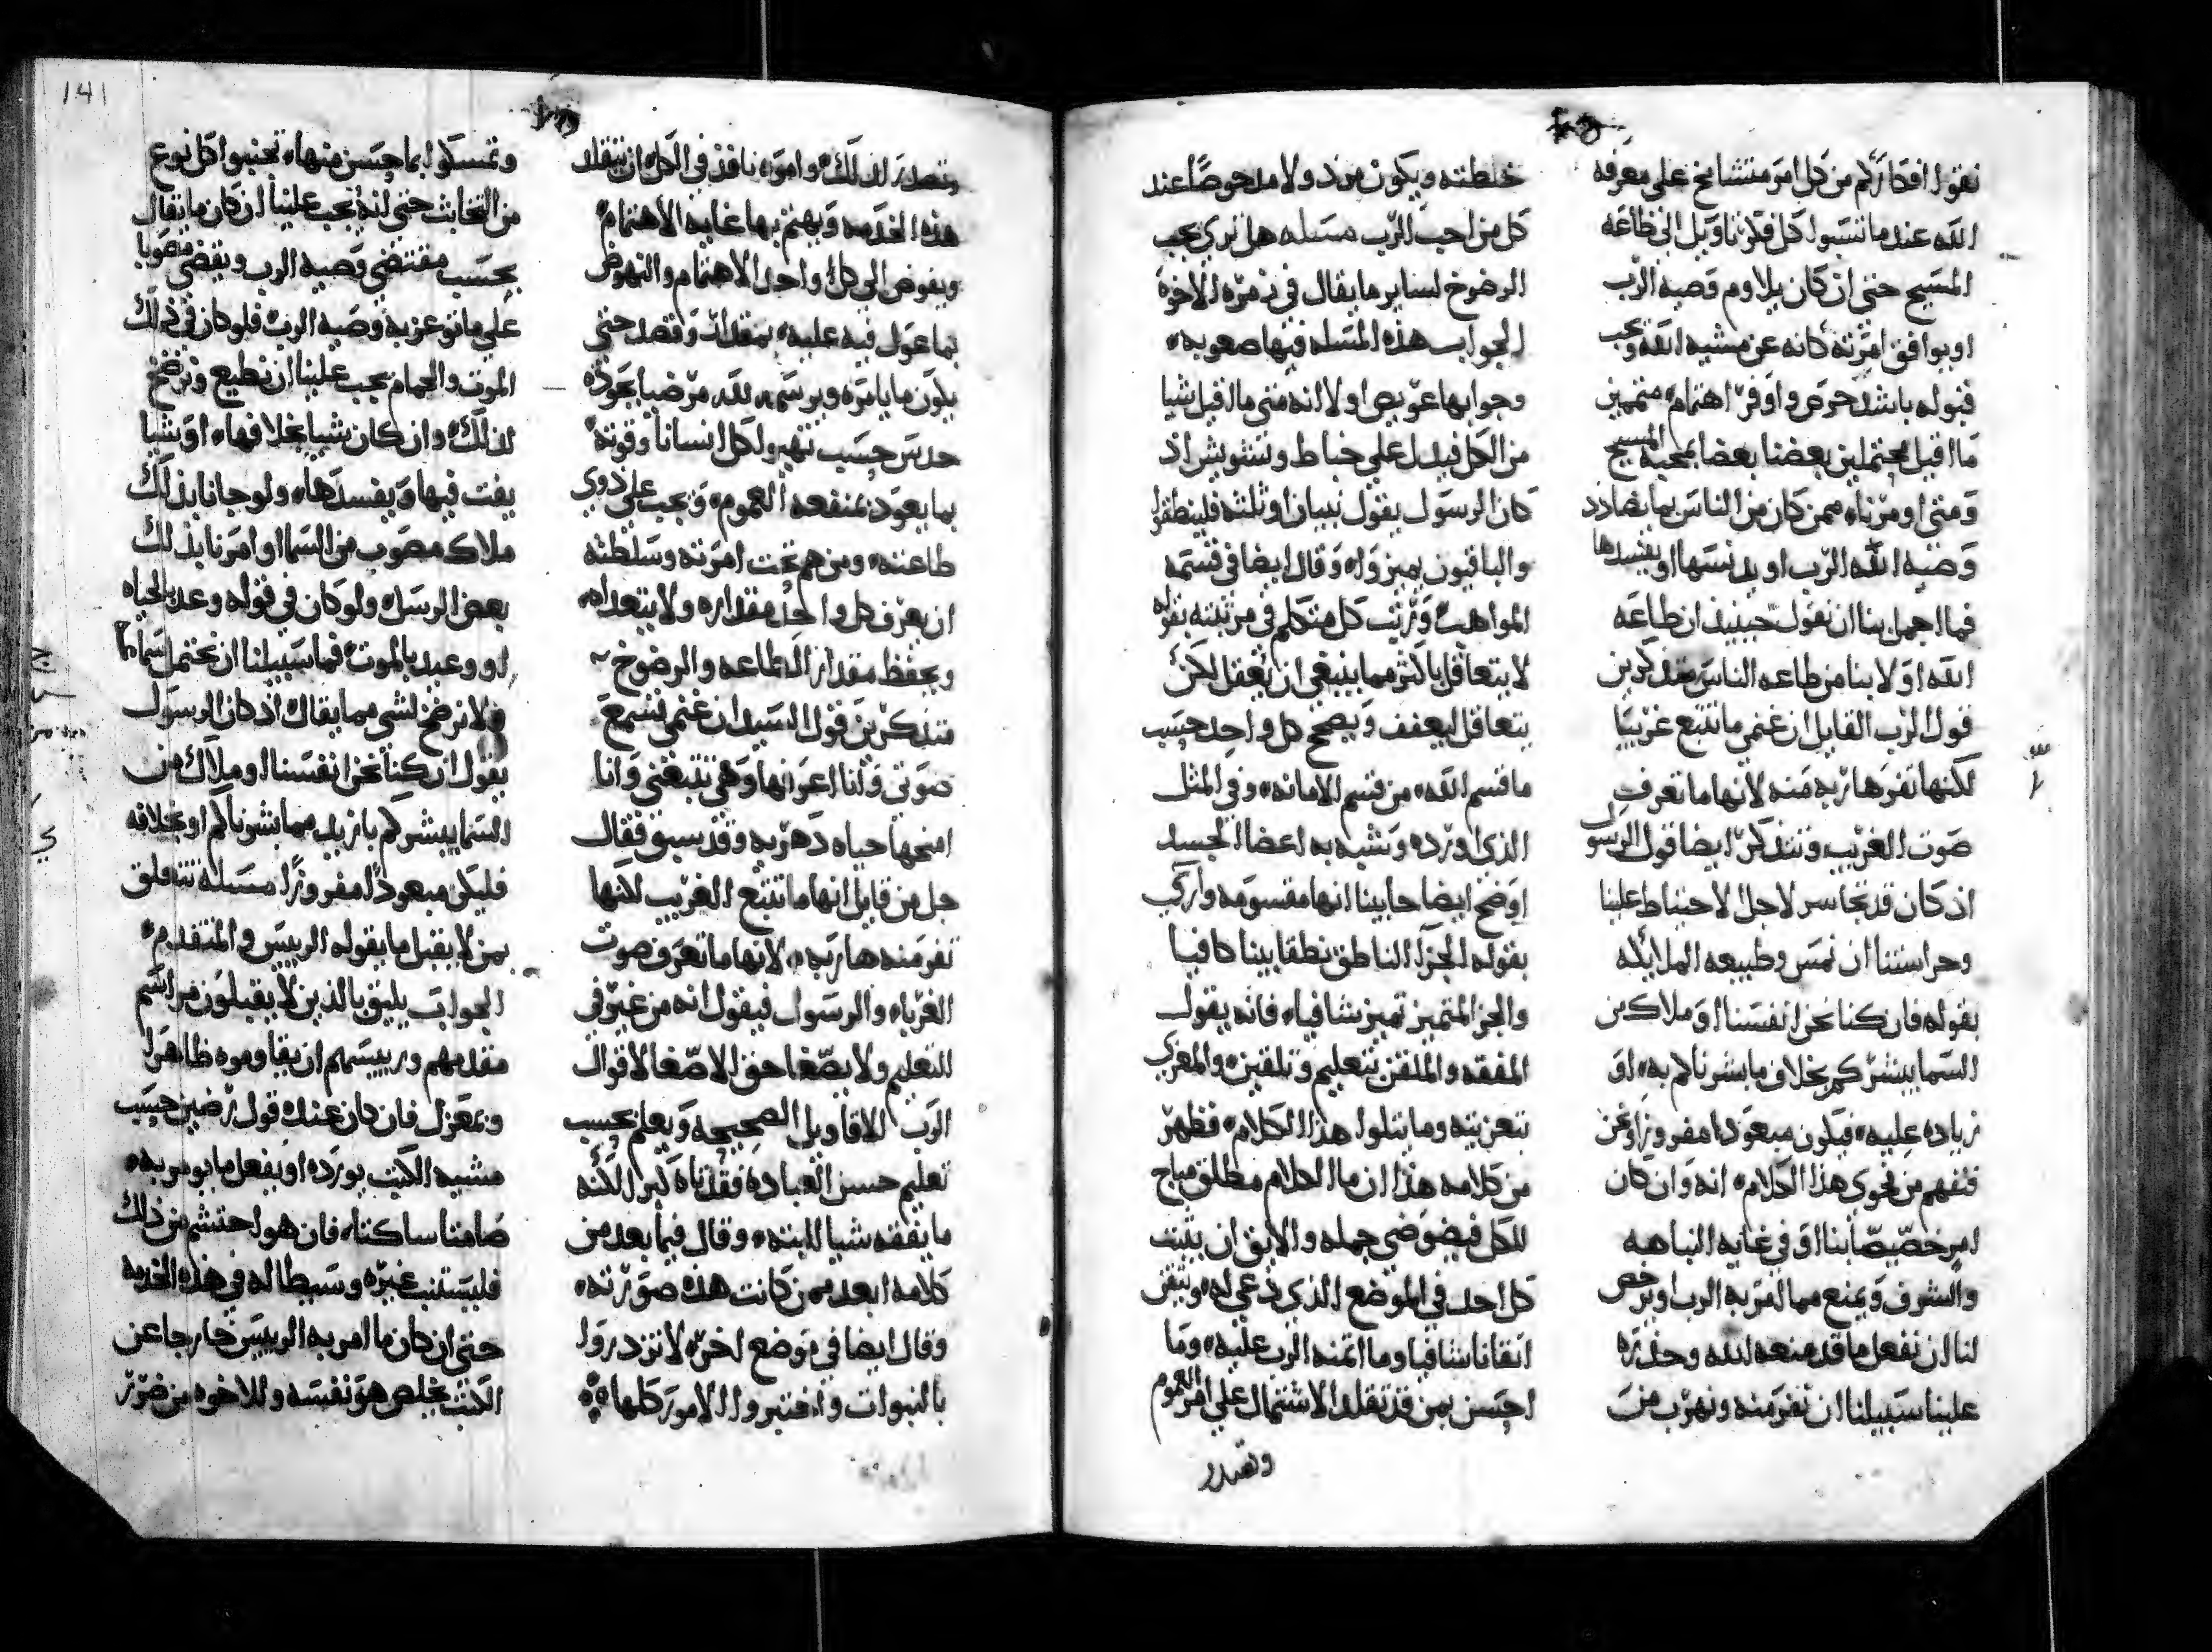 نعوله افكاركم من كل امر متشامخ على معرفه
الله عند ما تنسبوا كل فكر تاويل الى طاعه
المسيح حتى ان كان يلاوم وصيه الرب
او يوافق امرته كانه عن مشيه الله وجب
قبوله باشد حرص واوفر اهتمام متممين
ما اقيل محتملين بعضنا بعضا بمحبه المسيح
ومتى اومرنا ممن كان من الناس بما يضادد
وصيه الله الرب او يدنسها او يفسدها
فما اجمل بنا ان نقول حينيذ ان طاعه
الله اولا بنا من طاعه الناس متذكرين
قول الرب القايل ان غنمي ما تتبع غريبا
لكنها تفر هاربه منه لانها ما تعرف
صوت الغريب ونتذكر ايضا قول الرسول
اذ كان قد تجاسر لاجل الاحتياط علينا
وحراستنا ان نمس وطبيعه الملايكه
بقوله فان كنا نحن انفسنا او ملاك من
السما يبشركم بخلاف ما بشرناكم به او
زياده عليه فيكون مبعودا مفروزا ونحن
فنفهم من فحوى هذا الكلام انه وان كان
امر خصيصا بنا او في غايه النباهه
والشرف ويمنع مما امر به الرب او يرخص
لنا ان نفعل ما قد منعه الله وحذره
علينا سبيلنا ان نفر منه ونهرب من
خلطته ويكون مرذولا مدحوضا عند
كل من احب الرب مسله هل ترى يجب
الرضوخ لساير ما يقال في زمره الاخوه
الجواب هذه المسله فيها صعوبه
وجوابها عويص اولا انه متى ما اقبل شيا
من الكل فيدل على خباط وتشويش اذ
كان الرسول يقول نبيان او ثلثه فلينطقوا
والباقيون يميزوا وقال ايضا في قسمه
المواهب ورتب كل متكلم في مرتبته بقوله
لا يتعاقل باكثر مما ينبغي ان يعقل لكن
يتعاقل ليعفف ويصحح كل واحد حسب
ما قسم الله من قسم الامانه وفي المثل
الذي اورده وتشبه به اعضا الجسد
اوضح ايضا حابينا انها مقسومه واركي
بقوله الجزا الناطق نطقا بينا كافيا
والجز المتميز تميز شافيا فانه يقول
المفقه والملقن بتعليم وتلقين والمعزي
بتعزيته وما يتلوا هذا الكلام فظهر
من كلامه هذا ان ما الكلام مطلق مباح
للكل فيضوضي جمله والايق ان يثبت
كل احد في الموضع الذي دعي له ويتقن
اتقانا شافيا وما اتمنه الرب عليه وما
احسن بمن قد تقلد الاشتمال على امر العموم
وتصدر
وتصدر لذلك وامره نافذ في الكل ان يتقلد
هذه الخدمه ويهتم بها غايه الاهتمام
ويفوض الى كل واحد الاهتمام والنهوض
بما عول فيه عليه بمقدار وقصد حتى
يكون ما يامره ويرسمه لله مرضيا بجوده
حدس حسب تهيو لكل انسانا وقوته
بما يعود بمنفعه العموم ويجب على ذوي
طاعته ومن هم تحت امرته وسلطته
ان يعرف كل واحد مقداره ولا يتعداه
ويحفظ مقدار الطاعه والرضوخ
متذكرين قول السيد ان غنمي تسمع
صوتي وانا اعرفها وهي تتبعني وانا
امنحها حياه دهريه وقد سبق فقال
جل من قايل انها ما تتبع الغريب لكنها
تفر منه هاربه لانها ما تعرف صوت
الغربا والرسول فيقول انه من غير في
التعليم ولا يصغا حق الاصغا لاقوال
الرب الاقاويل الصحيحه ويعلم بحسب
تعليم حسن العباده فقد تاه كبرا لكنه
ما يفقه شيا البته وقال فيما بعد من
كلامه ابعد ممن كانت هذه صورته
وقال ايضا في موضع اخر لا تزدروا
بالنبوات واختبروا الامور كلها
وتمسكوا بما حسن منها تجنبوا كل نوع
من التخابث حتى انه يجب علينا ان كان ما يقال
بحسب مقتضى وصيه الرب ويفضي مصوبا
على ما توعز به وصيه الرب فلو كان في ذلك
الموت والحمام يجب علينا ان نطيع ونرضخ
لذلك وان كان شيا بخلافها او شيا
يفت فيها ويفسدها ولو جانا بذلك
ملاك مصوب من السما او امرنا بذلك
بعض الرسل ولو كان في قوله وعد بالحياه
او وعيد بالموت فما سبيلنا ان نحتمل سماعها
ولا نرضخ لشي مما يقال اذ كان الرسول
يقول ان كنا نحن انفسنا او ملاك من
السما يبشركم بازيد مما بشرناكم او بخلافه
فليكن مبعودا مفروزا مسله تتعلق
بمن لا يقبل ما يقوله الرييس والمتقدم
الجواب يليق بالذين لا يقبلون مراسم
مقدمهم ورييسهم ان يقاوموه ظاهرا
وبمعزل فان كان عنده قول رضين حسب
مشيه الكتب يورده او يفعل ما يومر به
صامتا ساكتا فان هو احتشم من ذلك
فليستنيب غيره وسيطا له في هذه الخدمه
حتى ان كان ما امر به الرييس خارجا عن
الكتب يخلص هو نفسه وللاخوه من ضرر